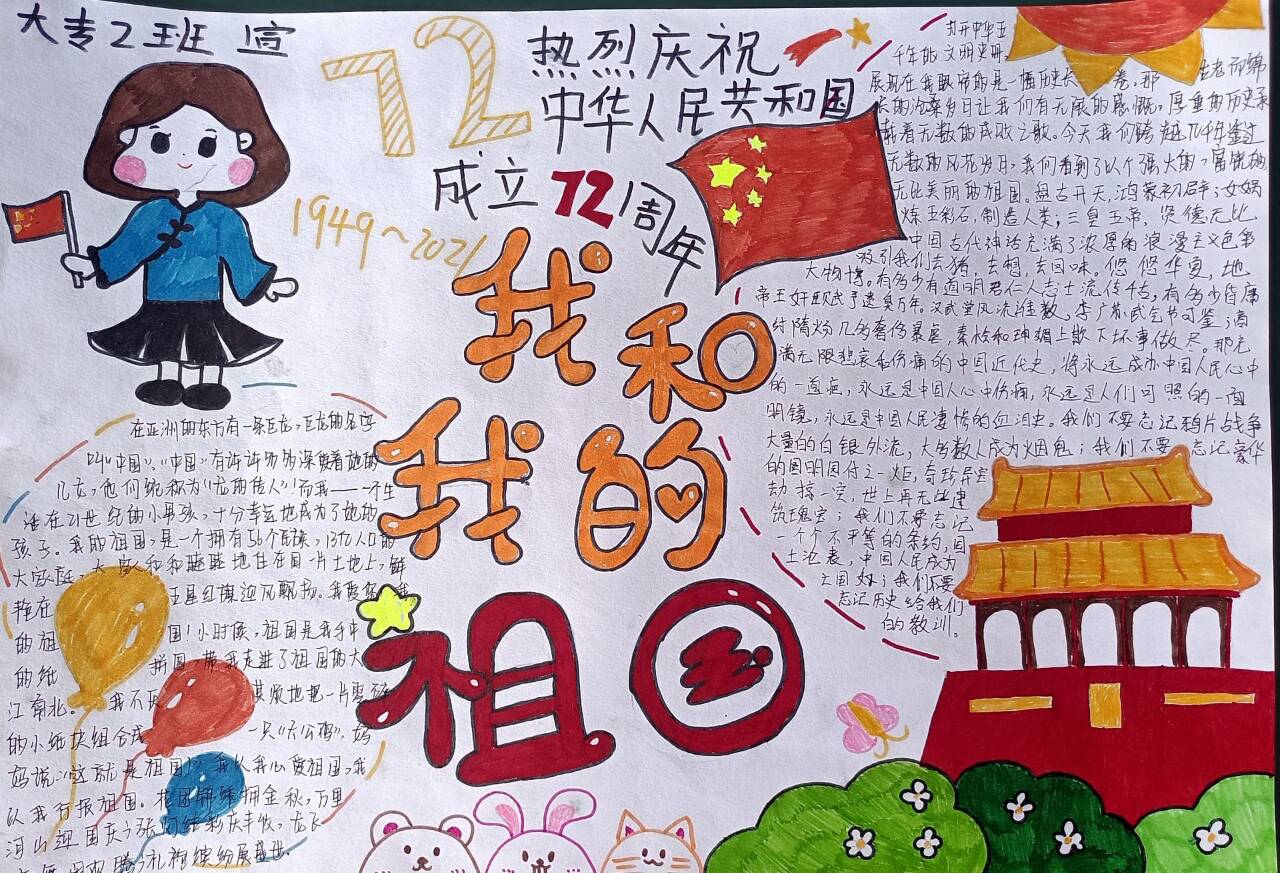 大专2班 宣
72
热烈庆祝
中华人民共和国
成立72周年
1949~2021
我和
我的
祖国
在亚洲的东方有一条巨龙,巨龙的名字
叫“中国”、“中国”有许许多多深爱着她的
儿女,他们统称为“龙的传人”!而我——一个生
活在21世纪的小男孩,十分幸运地成为了她的
孩子。我的祖国,是一个拥有56个民族,13亿人口的
大家庭,大家和和睦睦地住在同一片土地上,鲜
艳在 五星红旗迎风飘扬。我爱您,我
的祖 国!小时候,祖国是我手中
的纸 拼图,带我走进了祖国的大
江南北。 我不厌 其烦地把一片零碎
的小纸块组合成 一只“大公鸡”。妈
妈说:“这就是祖国!”我以我心爱祖国,我
以我行报祖国。花团锦绣拥金秋,万里
河山迎国庆;张灯结彩庆丰收,龙飞
腾;礼炮缤纷展盛世。
打开中华五
千年的文明史册,
展现在我眼帘的是一幅历史长 卷,那 古老而绵
长的沧桑岁月让我们有无限的感慨,厚重的历史承
载着无数的成败之歌。今天我们跨越几千年,透过
无数的风花岁月,我们看到了以个强大的,富饶的,
无比美丽的祖国。盘古开天,鸿蒙初辟;女娲
炼五彩石,制造人类;三皇五帝,贤德无比
中国古代神话充满了浓厚的浪漫主义色彩
吸引我们去猜,去想,去回味。悠悠华夏,地
大物博。有多少有道明君仁人志士流传千古,有多少昏庸
帝王奸臣贼子遗臭万年。汉武堂风流谁数,李广苏武气节可鉴;商
纣隋炀几多奢侈暴虐,秦桧和珅媚上欺下坏事做尽。那充
满无限悲哀和伤痛的中国近代史,将永远成为中国人民心中
的一道疤,永远是中国人心中伤痛,永远是人们可照的一面
明镜,永远是中国人民凄惨的血泪史。我们不要忘记鸦片战争
大量的白银外流,大多数人成为烟鬼;我们不要忘记豪华
的圆明园付之一炬,奇珍异宝
劫掠一空,世上再无此建
筑瑰宝;我们不要忘记
一个个不平等的条约,国
土沦丧,中国人民成为
亡国奴;我们不要
忘记历史给我们
的教训。